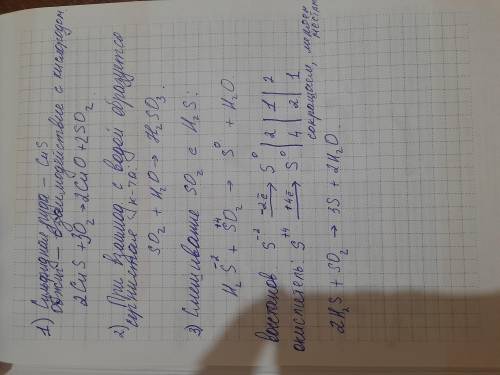 1) Сульфидная руда – CuS
обжиг – взаимодействие с кислородом
2CuS + 3O₂ → 2CuO + 2SO₂
2) При взаимод с водой образуется
сернистая к-та:
SO₂ + H₂O → H₂SO₃.
3) Смешивание SO₂ с H₂S:
H₂S⁻² + S⁺⁴O₂ → S⁰ + H₂O
восстанов S⁻² –2ē → S⁰ | 2 | 1 | 2
окислитель: S⁺⁴ +4ē → S⁰ | 4 | 2 | 1
сокращаем, меняем местами
2H₂S + SO₂ → 3S + 2H₂O